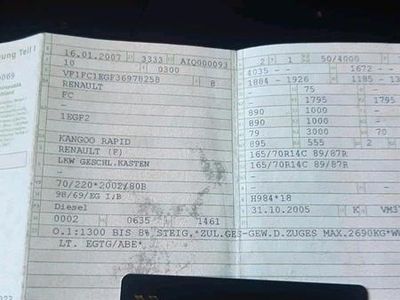 ung Teil I
16.01.2007 3333 AIQ000093
10 0300
VF1FC1EGF36978258 8
RENAULT
FC
1EGF2
KANGOO RAPID
RENAULT (F)
LKW GESCHL.KASTEN
-
70/220*2002/80B
98/69/EG I;B
Diesel
0002 0635 1461
O.1:1300 BIS 8% STEIG,*ZUL.GES-GEW.D.ZUGES MAX.2690KG*
LT. EGTG/ABE*
2 1 50/4000
4035 - 1672 -
1884 - 1926 1185 -
- 75 -
- 1795 1795
890 - 1000
890 - 1000
79 3000 70
895 555 2
165/70R14C 89/87R
165/70R14C 89/87R
- -
H984*18
31.10.2005 K